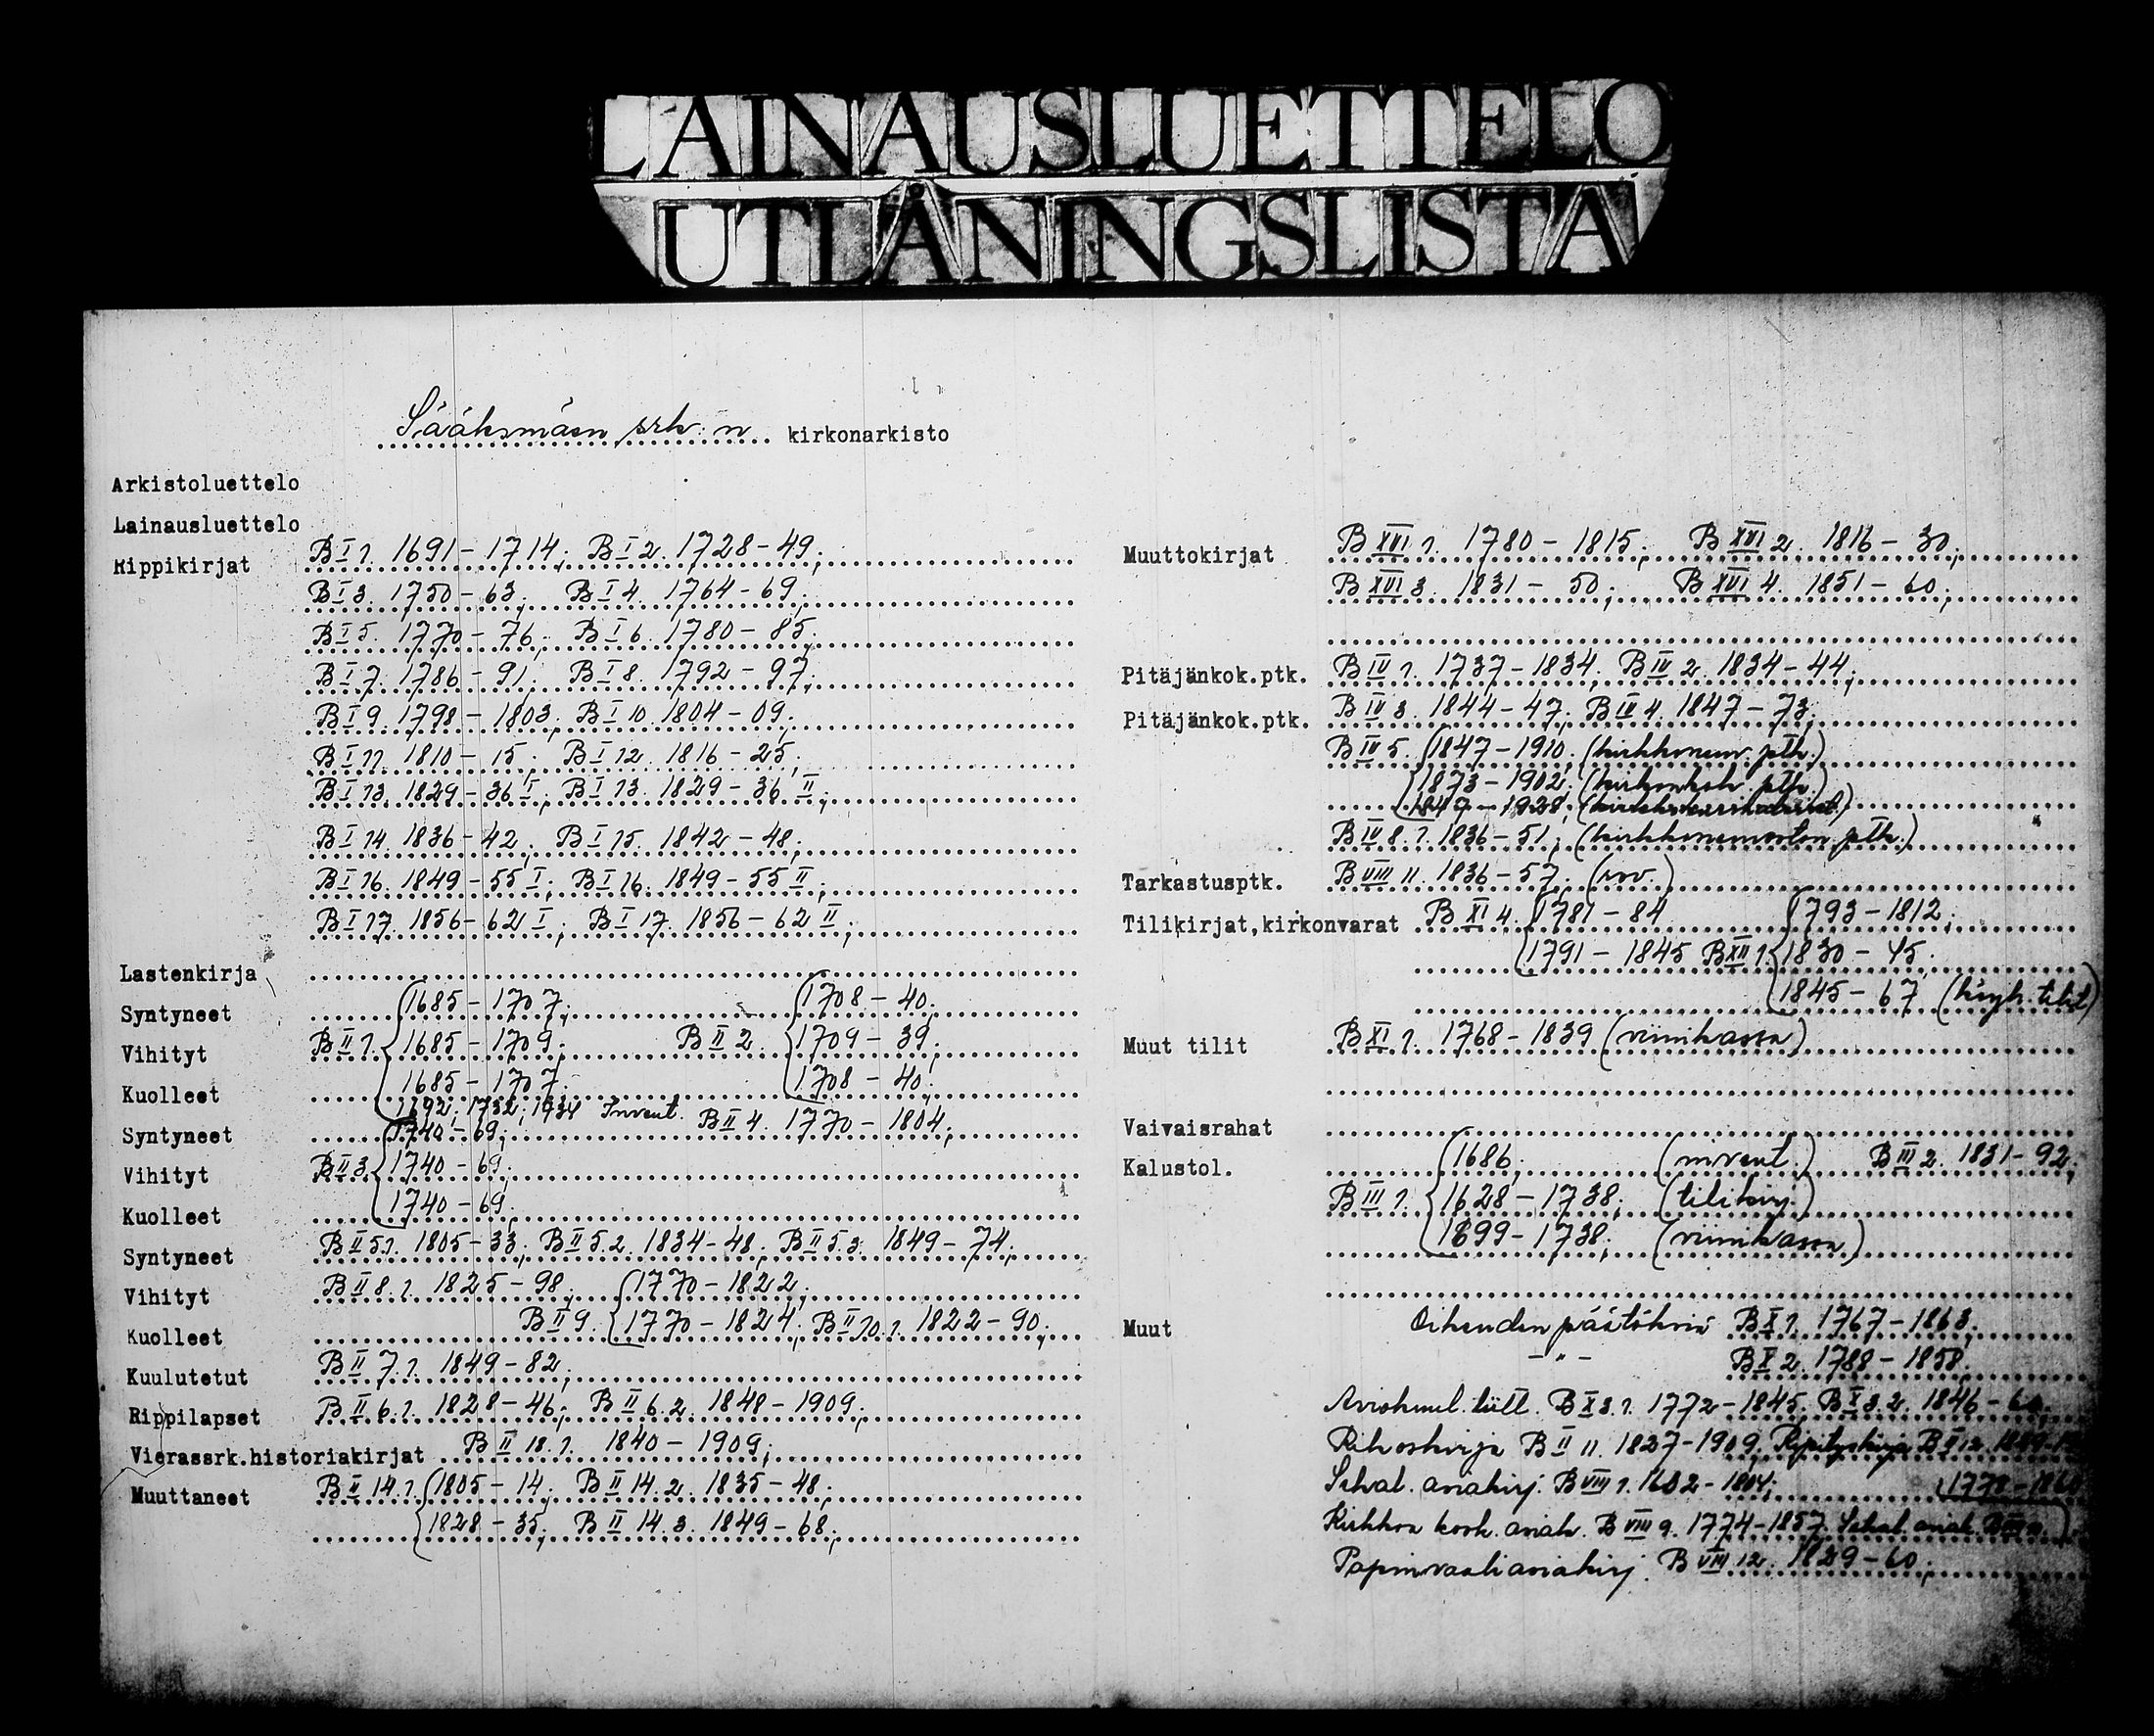 LAINAUSLUETTELO
UTLÅNINGSLISTA
Sääksmäen srk:n kirkonarkisto
Arkistoluettelo
Lainausluettelo
Rippikirjat B I 1. 1691-1714; B I 2. 1728-49;
B I 3. 1750-63; B I 4. 1764-69;
B I 5. 1770-76; B I 6. 1780-85;
B I 7. 1786-91; B I 8. 1792-97;
B I 9. 1798-1803; B I 10. 1804-09;
B I 11. 1810-15; B I 12. 1816-25;
B I 13. 1829-36 I; B I 13. 1829-36 II;
B I 14. 1836-42; B I 15. 1842-48;
B I 16. 1849-55 I; B I 16. 1849-55 II;
B I 17. 1856-62 I; B I 17. 1856-62 II;
Lastenkirja
Syntyneet 1685-1707; 1708-40;
Vihityt B II 1. 1685-1709; B II 2. 1709-39;
Kuolleet 1685-1707; 1708-40;
1692; 1732; 1734 Invent.
Syntyneet 1740-69; B II 4. 1770-1804;
Vihityt B II 3. 1740-69;
Kuolleet 1740-69;
Syntyneet B II 5.1. 1805-33; B II 5.2. 1834-48; B II 5.3. 1849-74;
Vihityt B II 8.1. 1825-98; 1770-1822;
Kuolleet B II 9. 1770-1824; B II 10.1. 1822-90;
Kuulutetut B II 7.1. 1849-82;
Rippilapset B II 6.1. 1828-46; B II 6.2. 1848-1909;
Vierassrk.historiakirjat B II 18.1. 1840-1909;
Muuttaneet B II 14.1. 1805-14; B II 14.2. 1835-48;
1828-35; B II 14.3. 1849-68;
Muuttokirjat B XVI 1. 1780-1815; B XVI 2. 1816-30;
B XVI 3. 1831-50; B XVI 4. 1851-60;
Pitäjänkok.ptk. B IV 1. 1737-1834; B IV 2. 1834-44;
Pitäjänkok.ptk. B IV 3. 1844-47; B IV 4. 1847-73;
B IV 5. 1847-1910; (kirkkoneuv. ptk.)
1873-1902; (kirkonkok. ptk.)
1847-1928;
B IV 8.1. 1836-51; (kirkkoneuvoston ptk.)
Tarkastusptk. B VIII 11. 1836-57. (rov.)
Tilikirjat,kirkonvarat B XI 4. 1781-84 1793-1812;
1791-1845 B XII 1. 1830-45.
1845-67 (köyh. tilit)
Muut tilit B XI 1. 1768-1839 (viinikassa)
Vaivaisrahat
Kalustol. 1686; (invent.) B III 2. 1831-92;
B III 1. 1628-1738; (tilikirj.)
1699-1738; (viinikassa)
Muut Oikeuden päätöksiä B X 1. 1767-1863;
-"- B X 2. 1788-1858.
Aviokuul. liitt. B X 3.1. 1772-1845; B X 3.2. 1846-60.
Rikoskirja B II 11. 1827-1909. B II 12.
Sekal. asiakirj. B VIII 1. 1602-1804; 1778-1860
Kirkkoa kosk. asiak. B VIII 9. 1774-1857. Sekal. asiak.
Papinvaaliasiakirj. B VIII 12. 1829-60;